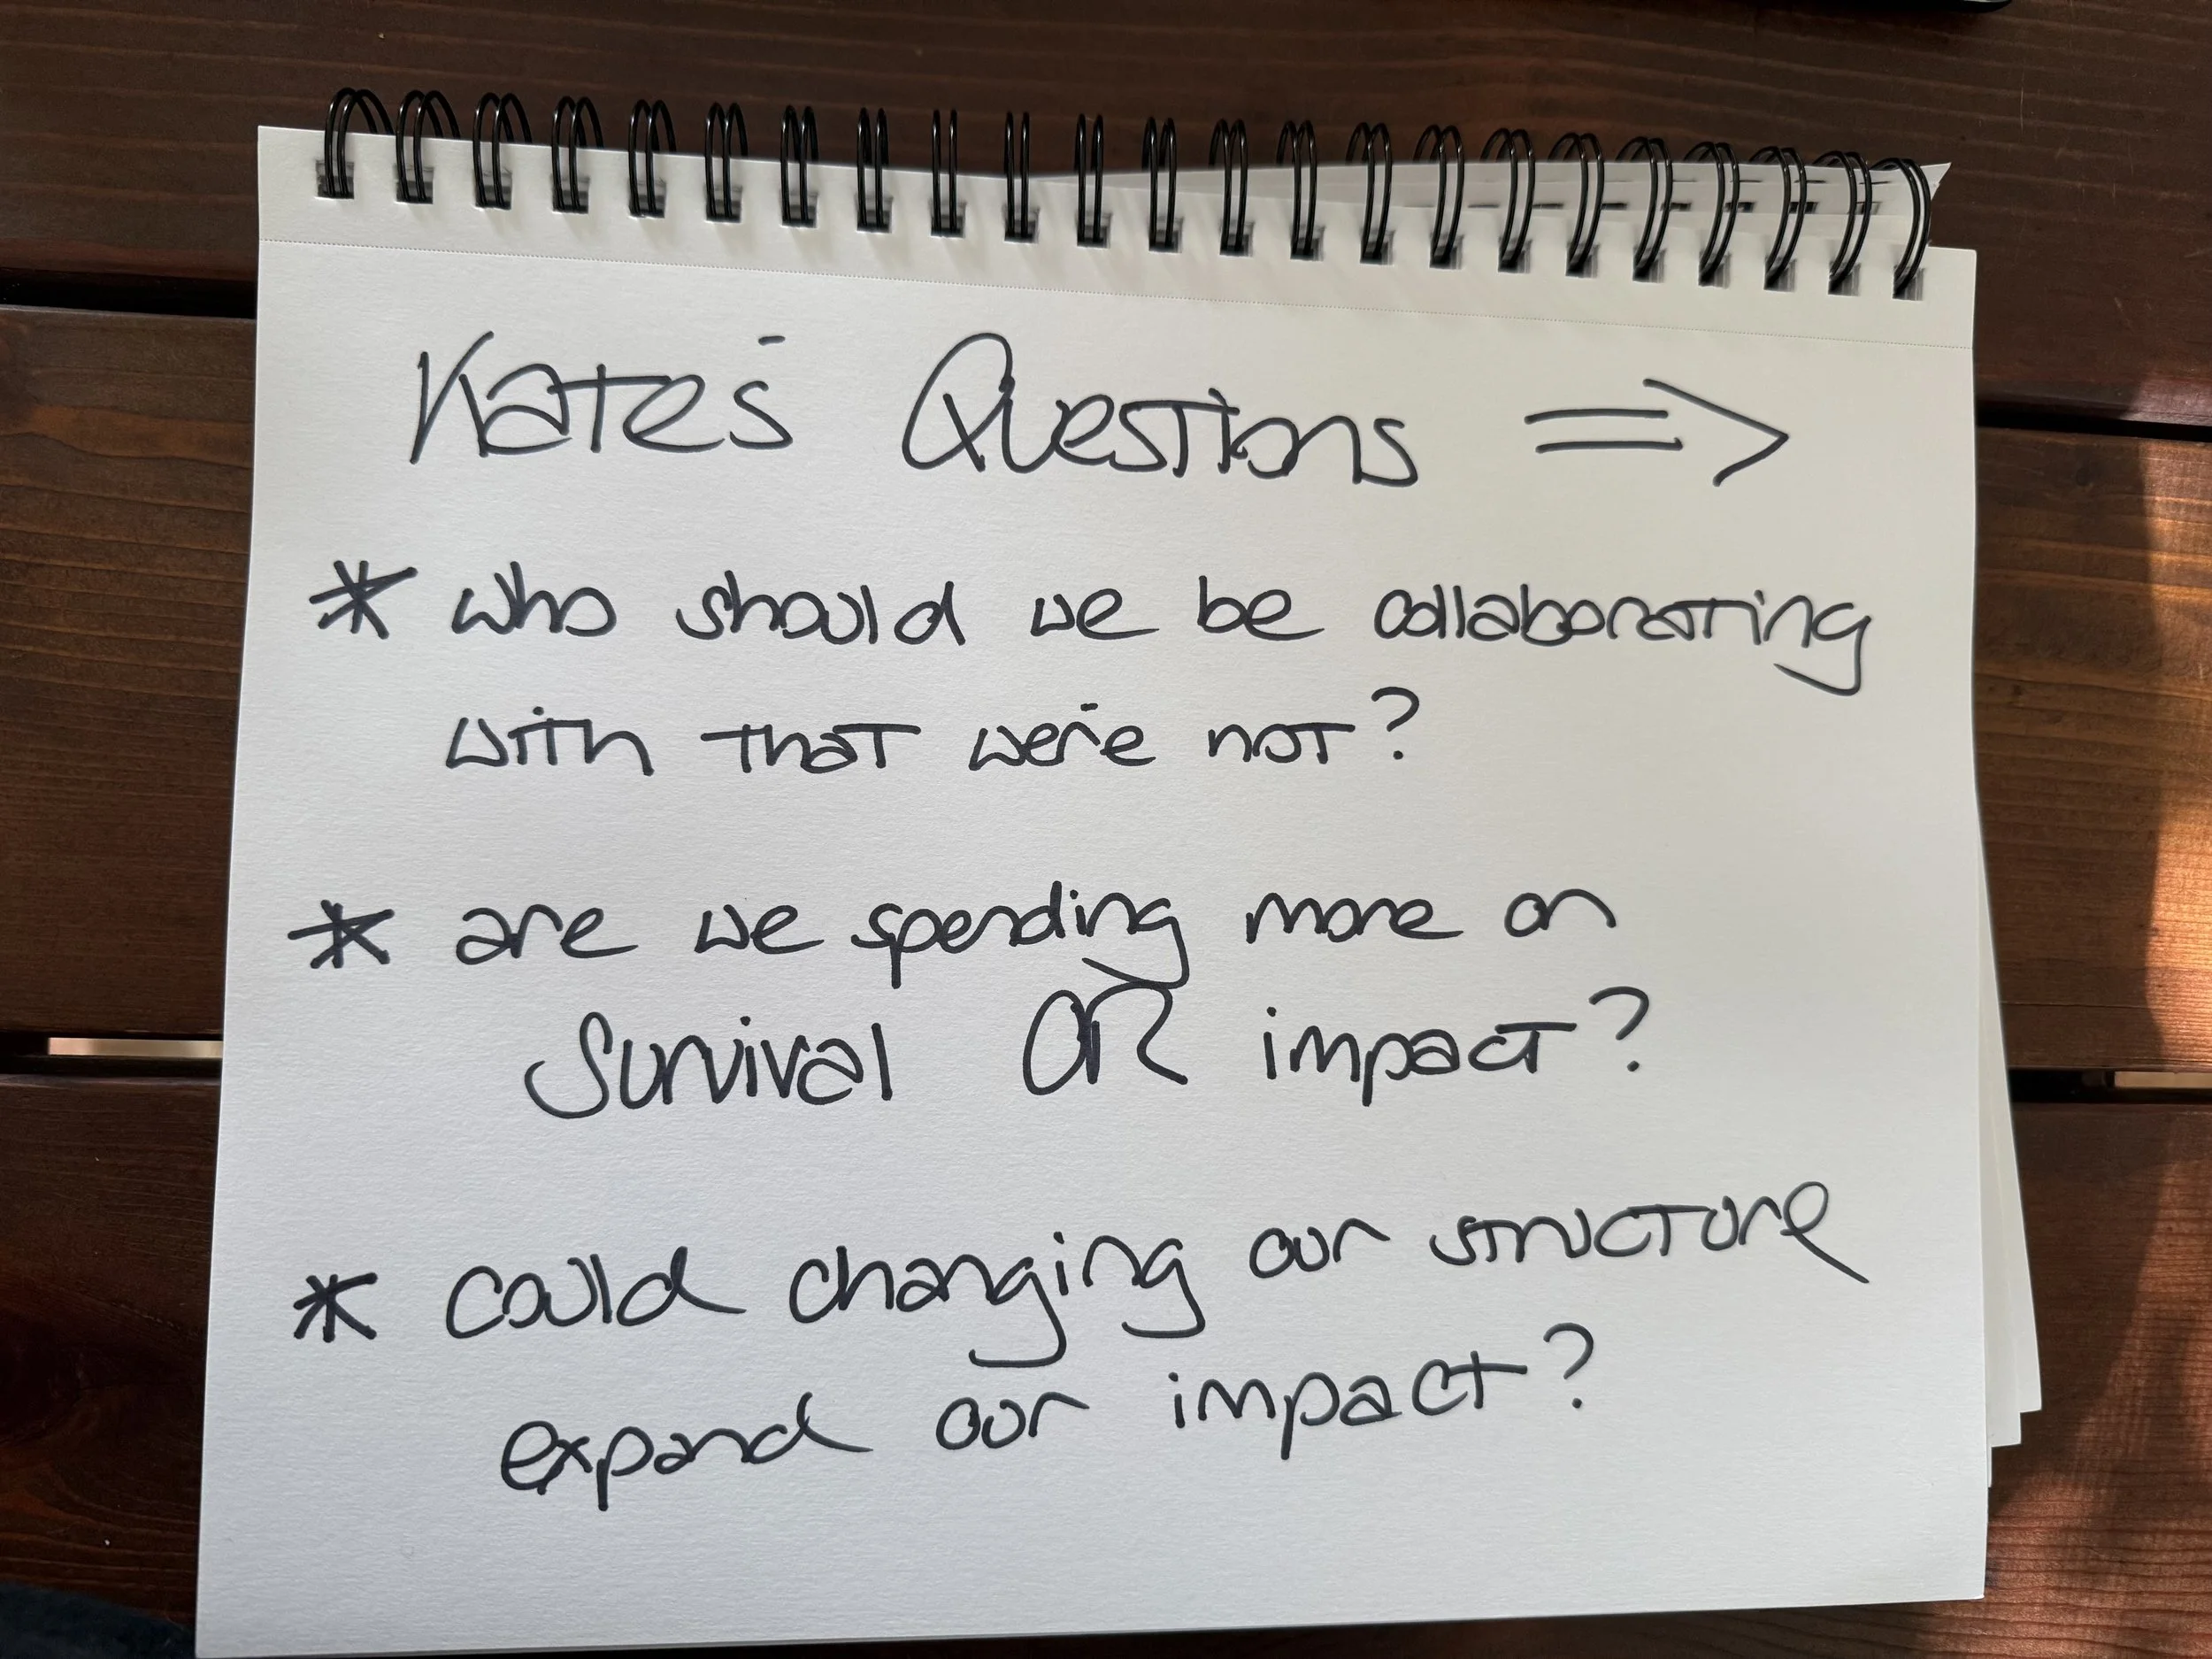 Kate's Questions =>
* who should we be collaborating
with that we're not?
* are we spending more on
Survival OR impact?
* could changing our structure
expand our impact?